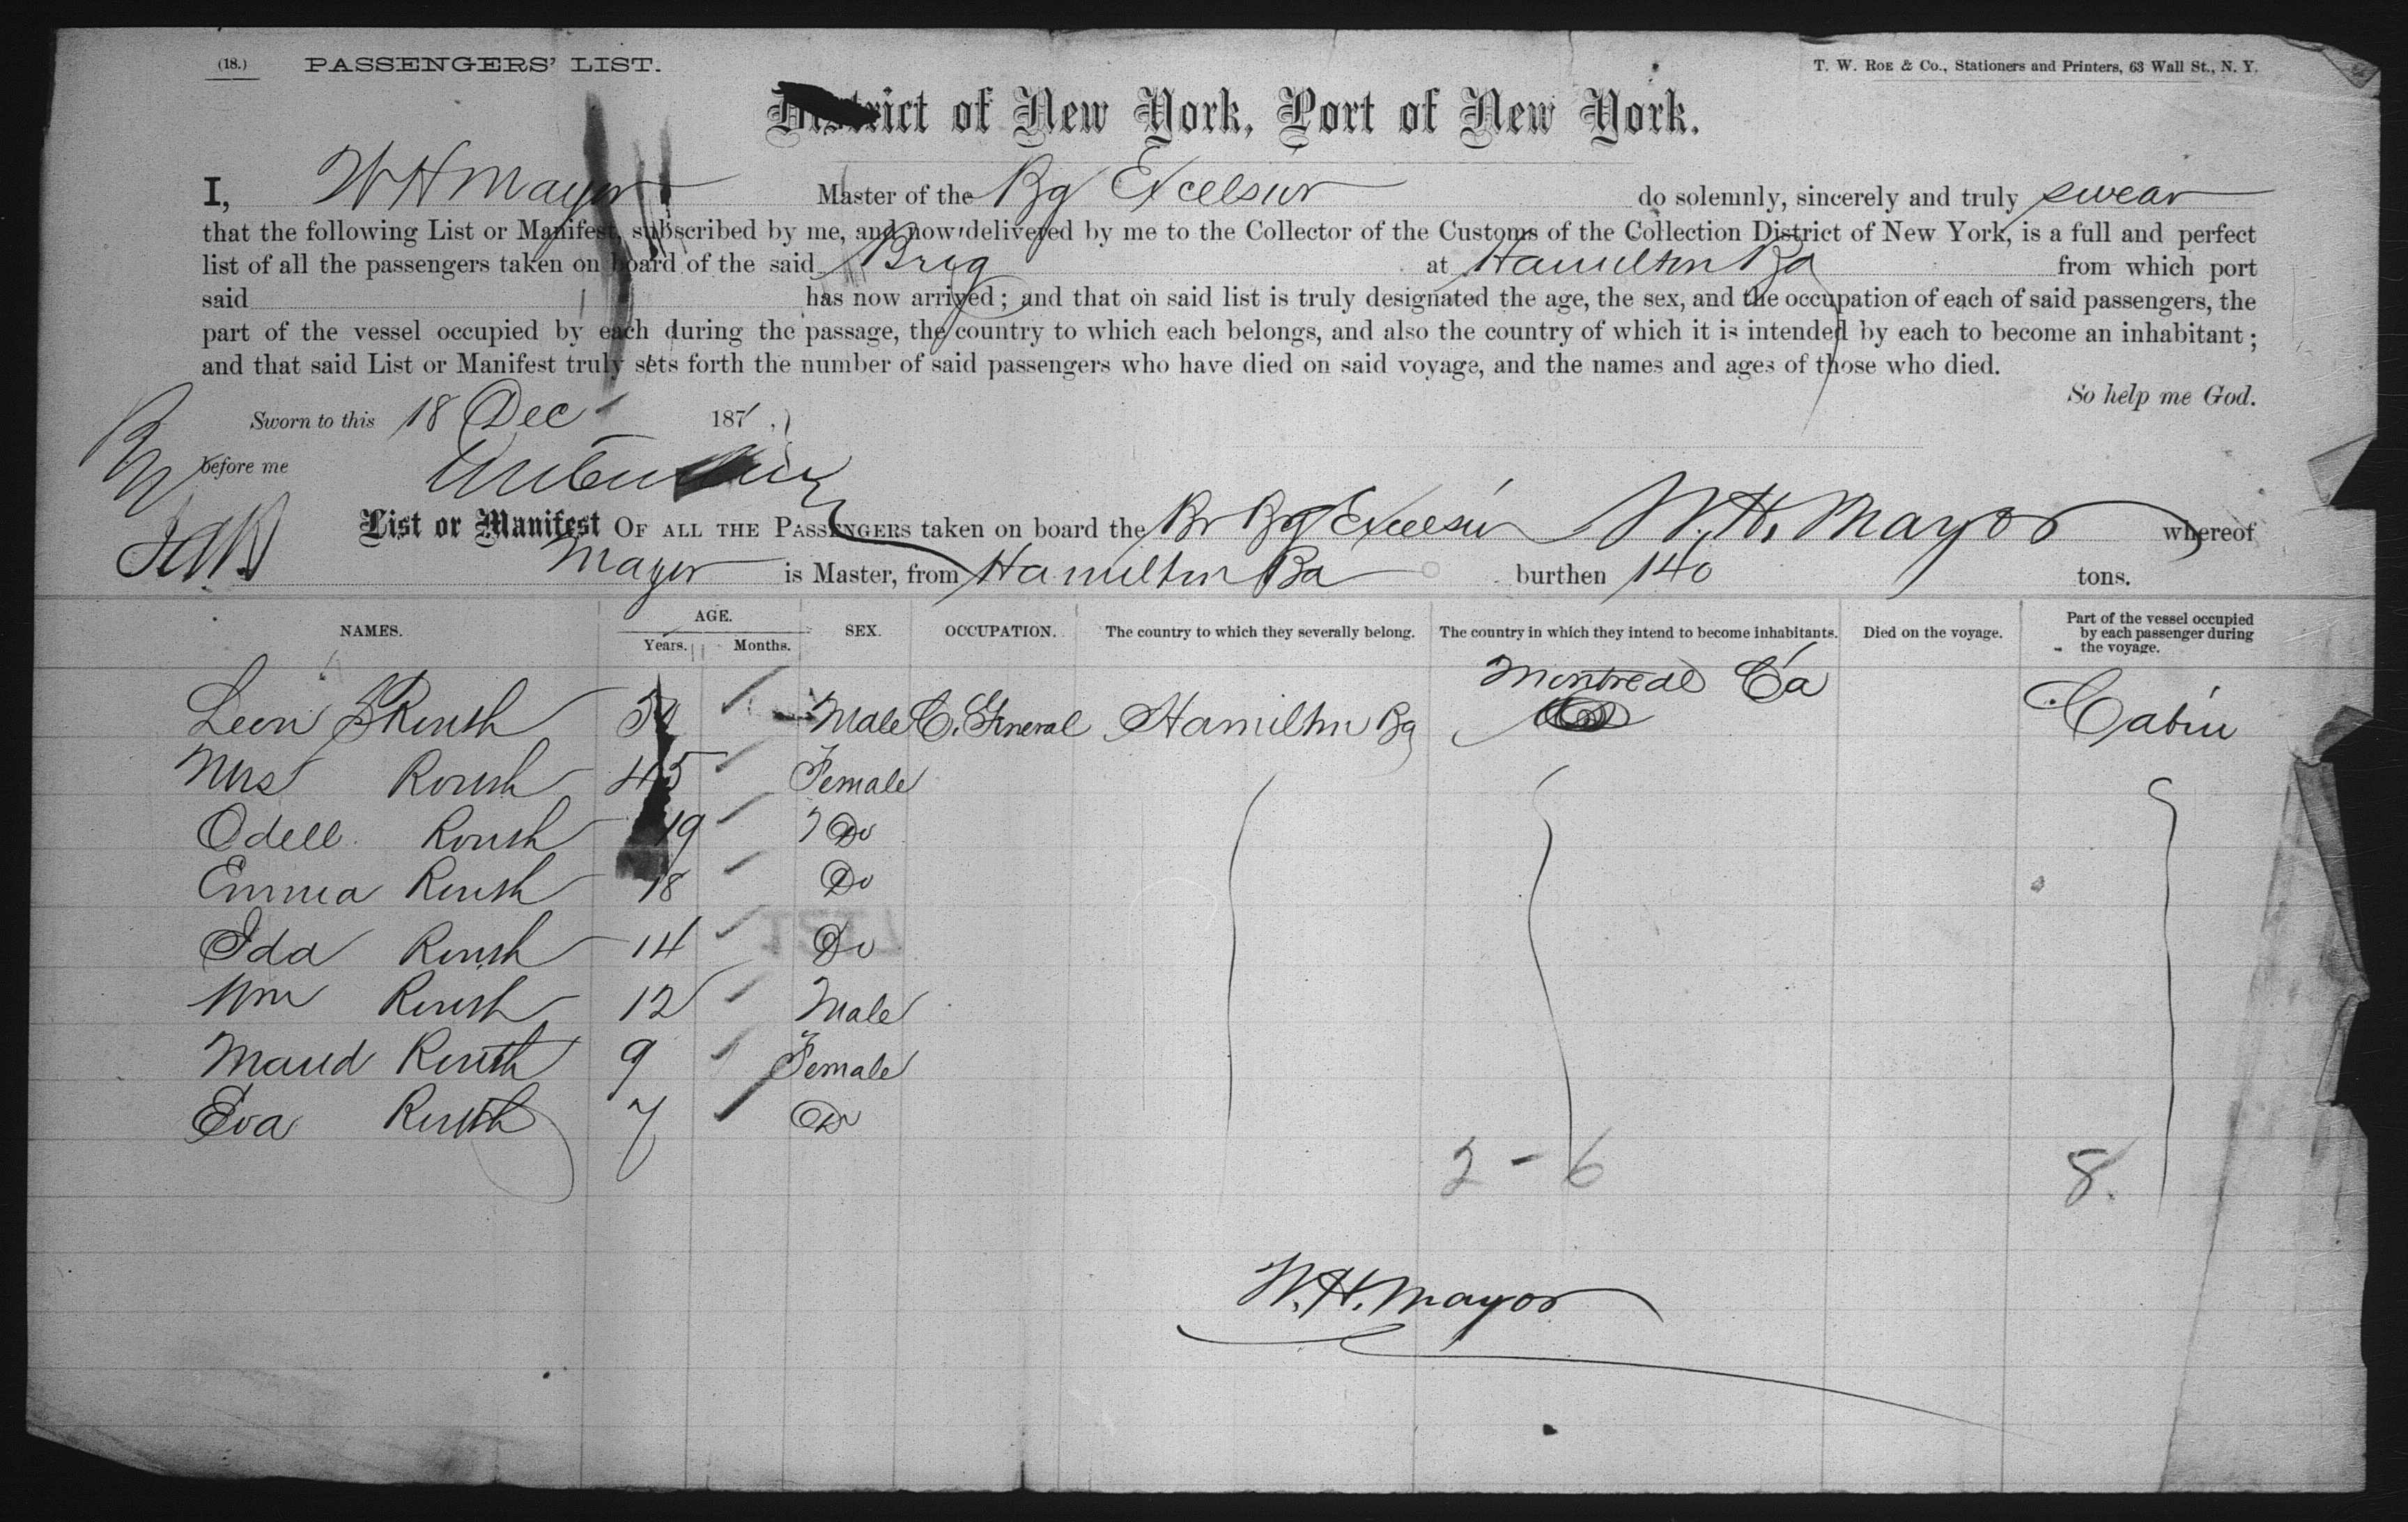 (18.) PASSENGERS' LIST. T. W. ROE & Co., Stationers and Printers, 63 Wall St., N. Y.
District of New York, Port of New York.
I, W H Mayor Master of the Bg Excelsior do solemnly, sincerely and truly swear
that the following List or Manifest, subscribed by me, and now delivered by me to the Collector of the Customs of the Collection District of New York, is a full and perfect
list of all the passengers taken on board of the said Brig at Hamilton Ba from which port
said has now arrived; and that on said list is truly designated the age, the sex, and the occupation of each of said passengers, the
part of the vessel occupied by each during the passage, the country to which each belongs, and also the country of which it is intended by each to become an inhabitant;
and that said List or Manifest truly sets forth the number of said passengers who have died on said voyage, and the names and ages of those who died.
So help me God.
Sworn to this 18 Dec 187
before me
List or Manifest OF ALL THE PASSENGERS taken on board the Br Bg Excelsior W. H. Mayor whereof
Mayor is Master, from Hamilton Ba burthen 140 tons.
NAMES. AGE. Years. Months. SEX. OCCUPATION. The country to which they severally belong. The country in which they intend to become inhabitants. Died on the voyage. Part of the vessel occupied by each passenger during the voyage.
Montreal Ca
Leon Roush Male C. General Hamilton Ba Cabin
Mrs Roush 45 Female
Odell Roush 19 Do
Emma Roush 18 Do
Ida Roush 14 Do
Wm Roush 12 Male
Maud Roush 9 Female
Eva Roush 7 Do
2 - 6 8.
W. H. Mayor